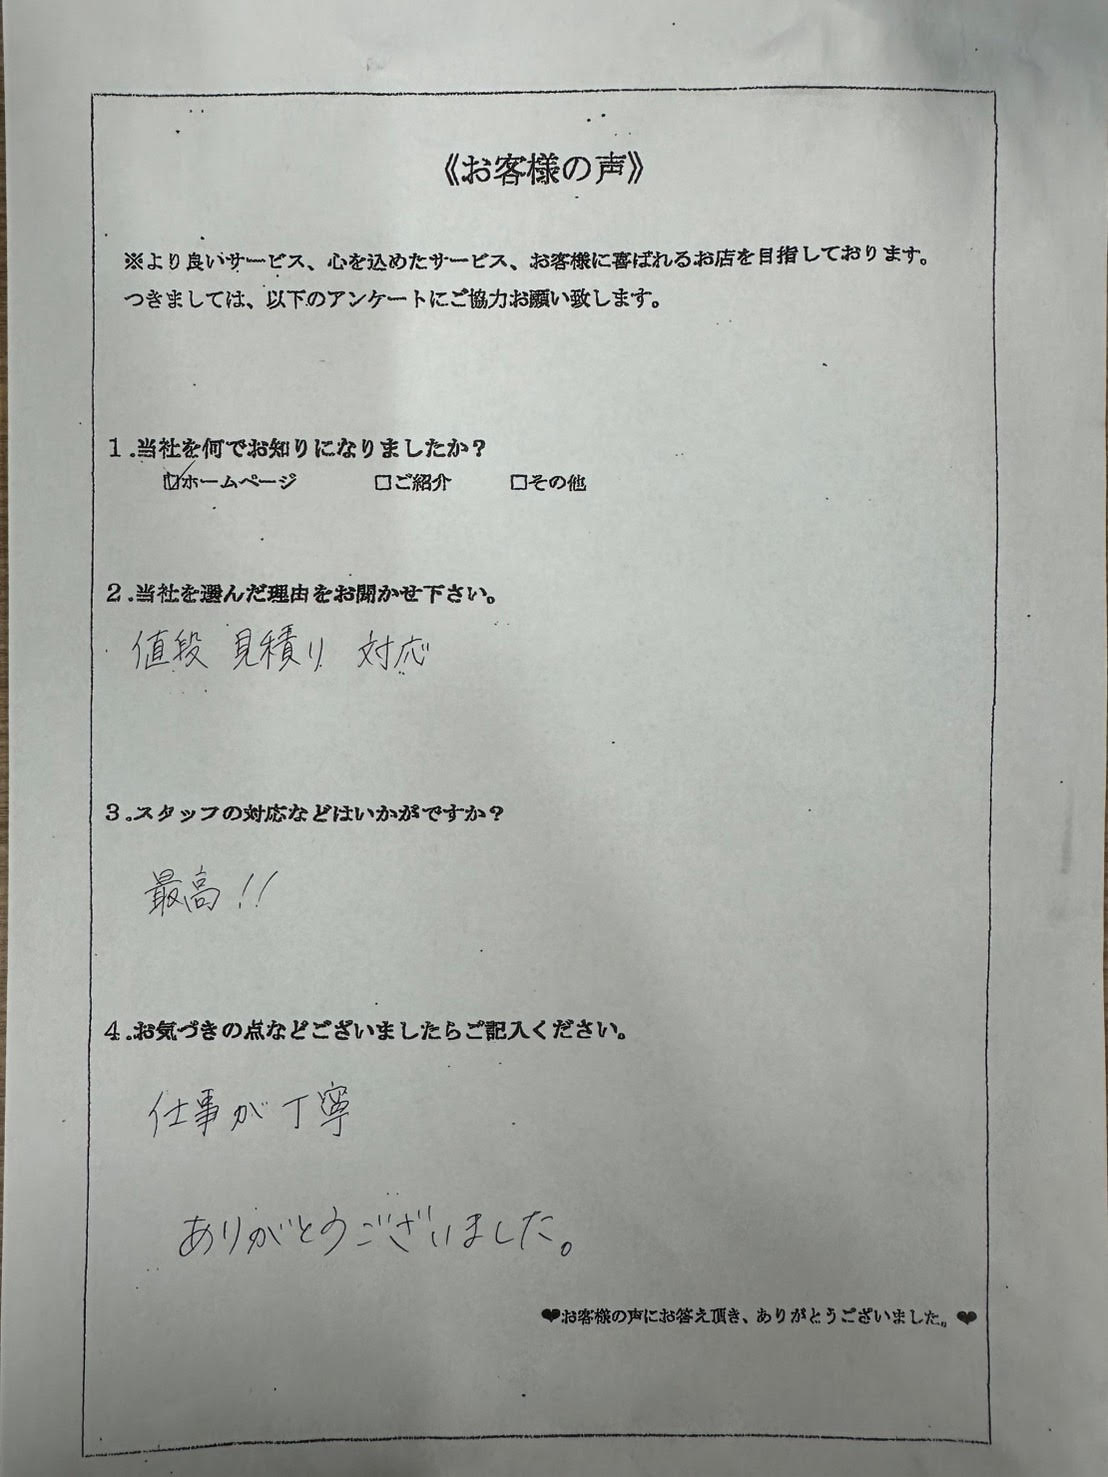 《お客様の声》
※より良いサービス、心を込めたサービス、お客様に喜ばれるお店を目指しております。
つきましては、以下のアンケートにご協力お願い致します。
1.当社を何でお知りになりましたか?
☑ホームページ □ご紹介 □その他
2.当社を選んだ理由をお聞かせ下さい。
値段 見積り 対応
3.スタッフの対応などはいかがですか?
最高!!
4.お気づきの点などございましたらご記入ください。
仕事が丁寧
ありがとうございました。
❤お客様の声にお答え頂き、ありがとうございました。❤